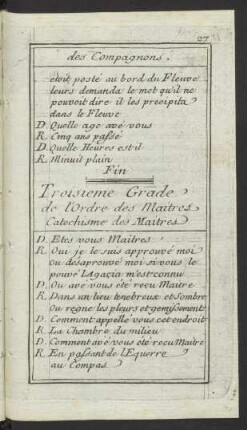 27
des Compagnons.
etoit posté au bord du Fleuve
leurs demanda le mot qu'il ne
pouvoit dire il les precipita
dans le Fleuve
D. Quelle age avé vous
R. Cinq ans passé
D. Quelle Heures est il
R. Minuit plain
Fin
Troisieme Grade
de l'Ordre des Maitres
Catechisme des Maitres
D. Etes vous Maitres
R. Oui je le suis approuvé moi
Ou desaprouvé moi si vous le
pouvé l'Agacia m'est connu
D. Ou avé vous été recu Maitre
R. Dans un lieu tenebreux et sombre
Ou regne les pleurs et gemissements
D. Comment appelle vous cet endroit
R. La Chambre du milieu
D. Comment avé vous été recu Maitre
R. En passant de l'Equerre
au Compas